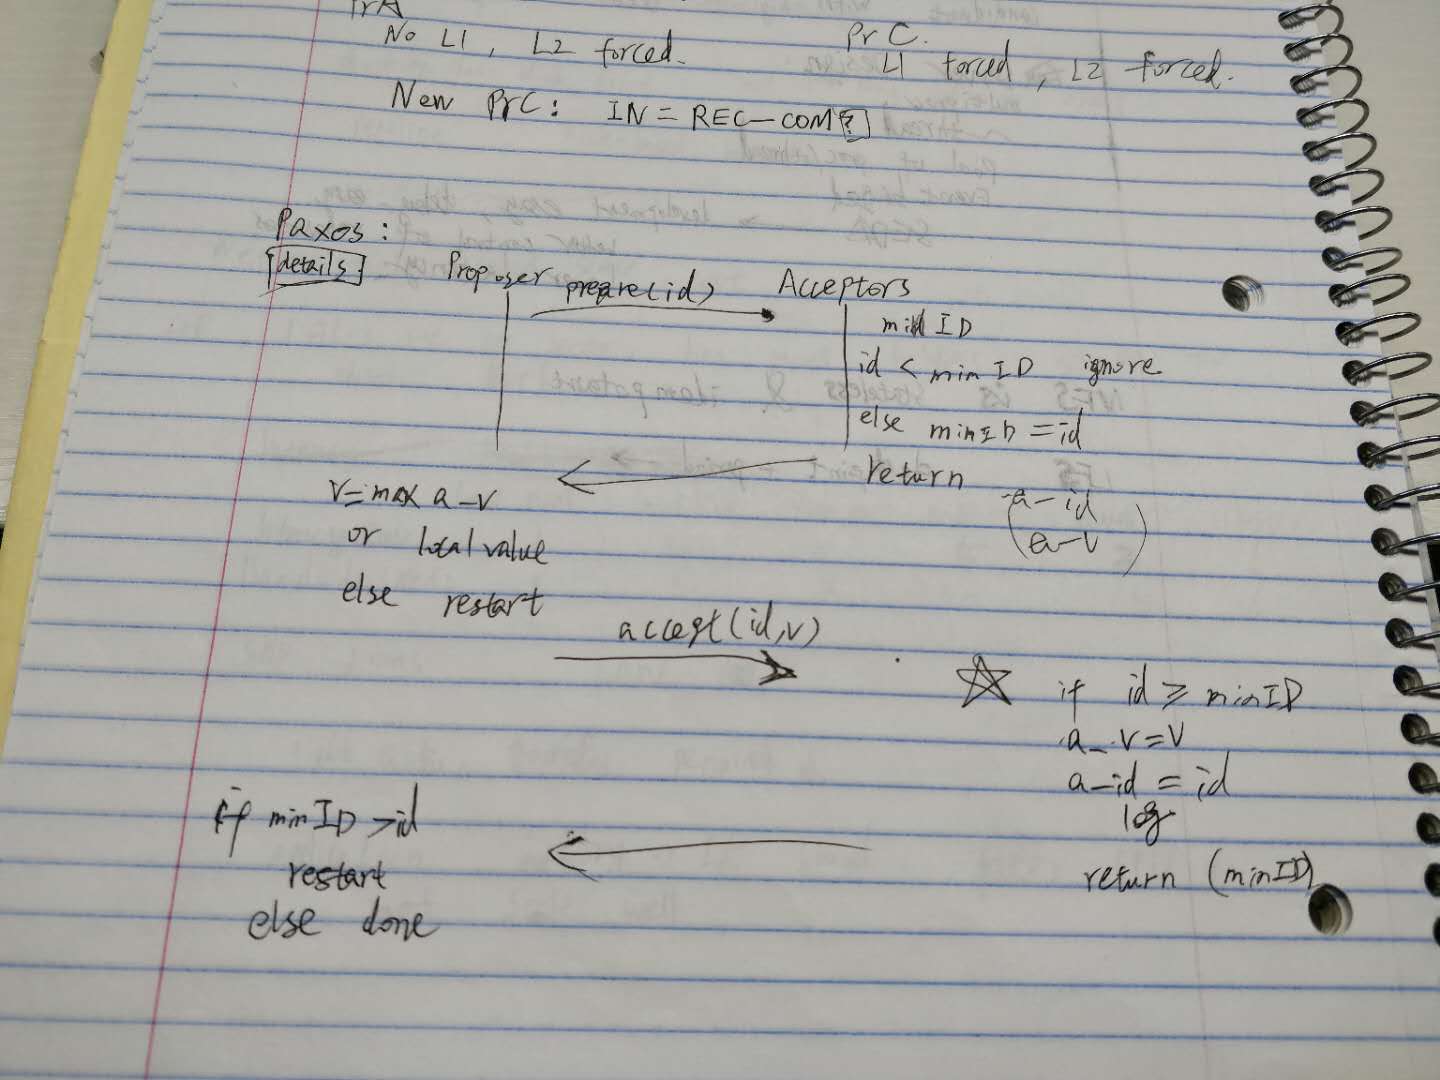 PrA
No L1, L2 forced.
PrC.
L1 forced, L2 forced.
New PrC: IN = REC-COM[?]
Paxos:
[details]
Proposer
prepare(id)
Acceptors
minID
id < minID ignore
else minID = id
return
a-id
a-v
v=max a-v
or local value
else restart
accept(id,v)
☆ if id ≥ minID
a-v=v
a-id = id
log
return (minID)
if minID > id
restart
else done